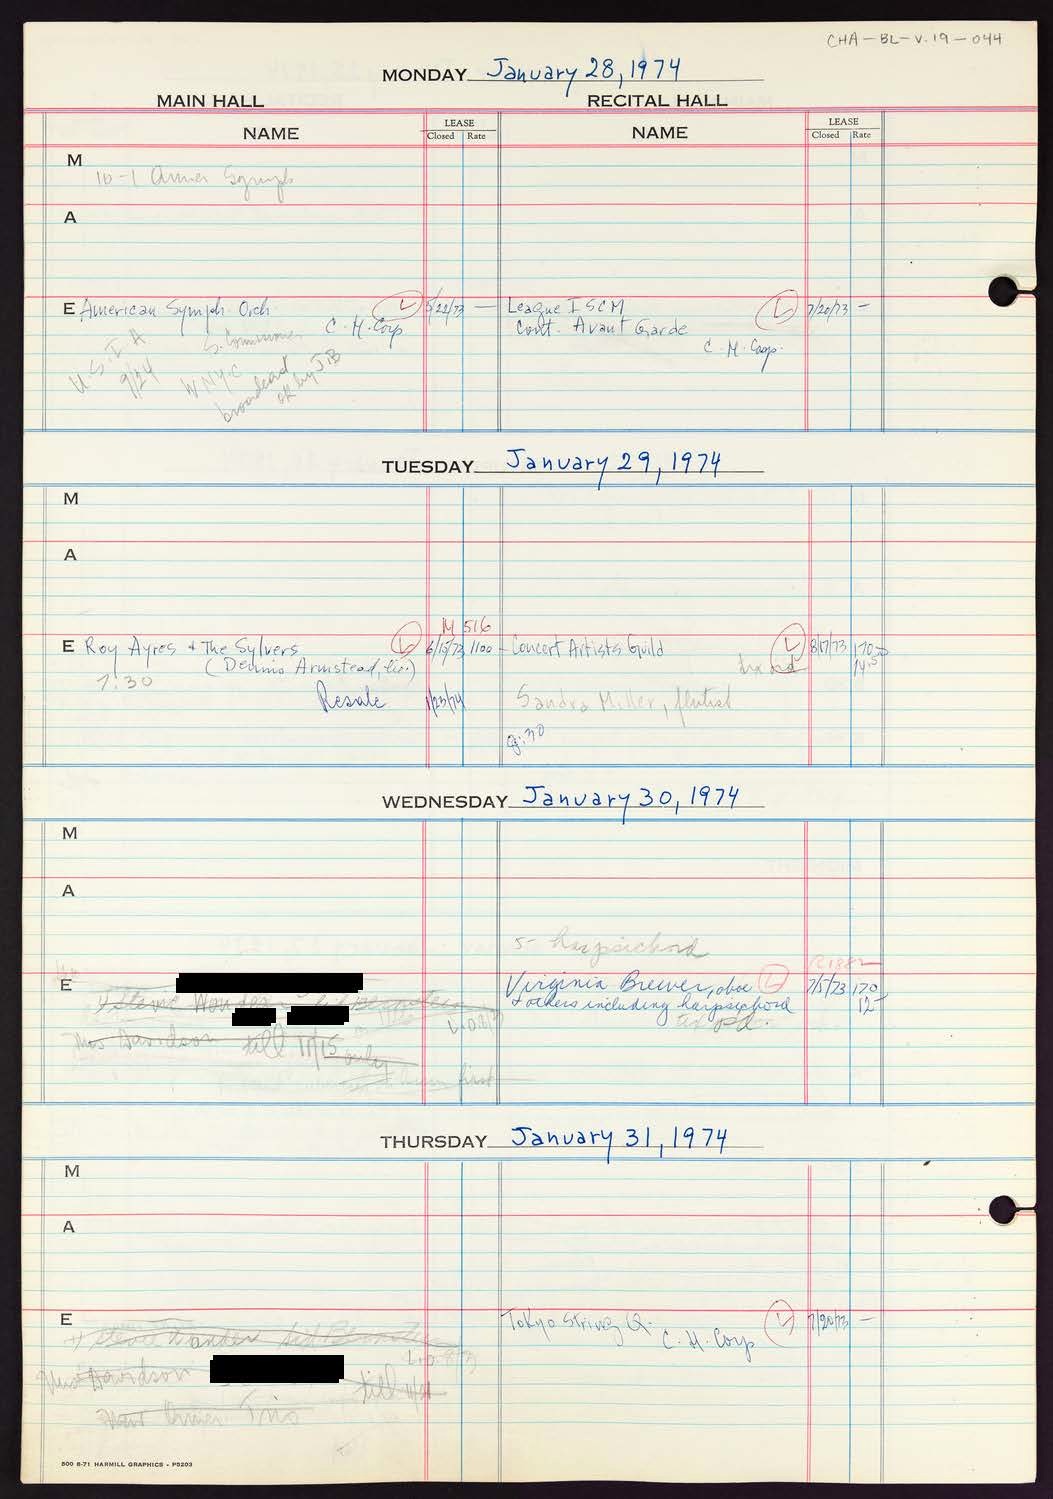 CHA-BL-V.19-044
MONDAY January 28, 1974
MAIN HALL RECITAL HALL
NAME LEASE Closed Rate NAME LEASE Closed Rate
M
10-1 Amer Symph
A
E American Symph. Orch. L 5/22/73 — League ISCM L 7/20/73 —
C.H. Corp Cont. Avant Garde
C.H. Corp.
U.S.I.A
9/24
WNYC
broadcast
OK by JB
TUESDAY January 29, 1974
M
A
M 516
E Roy Ayres & The Sylvers L 6/15/73 1100 Concert Artists Guild L 8/17/73 170
(Dennis Armstead, )
7:30
Resale 1/23/74 Sandra Miller, flutist
8:30
WEDNESDAY January 30, 1974
M
A
5- harpsichord
R1882
E Virginia Brewer, oboe L 7/5/73 170
Stevie Wonder + others including harpsichord 12
tax pd.
Mrs Davidson till 11/15 only
first
THURSDAY January 31, 1974
M
A
E Tokyo String Q. L 7/20/73 —
Stevie Wonder C.H. Corp
Davidson till
Trio
500 6-71 HARMILL GRAPHICS - P5203